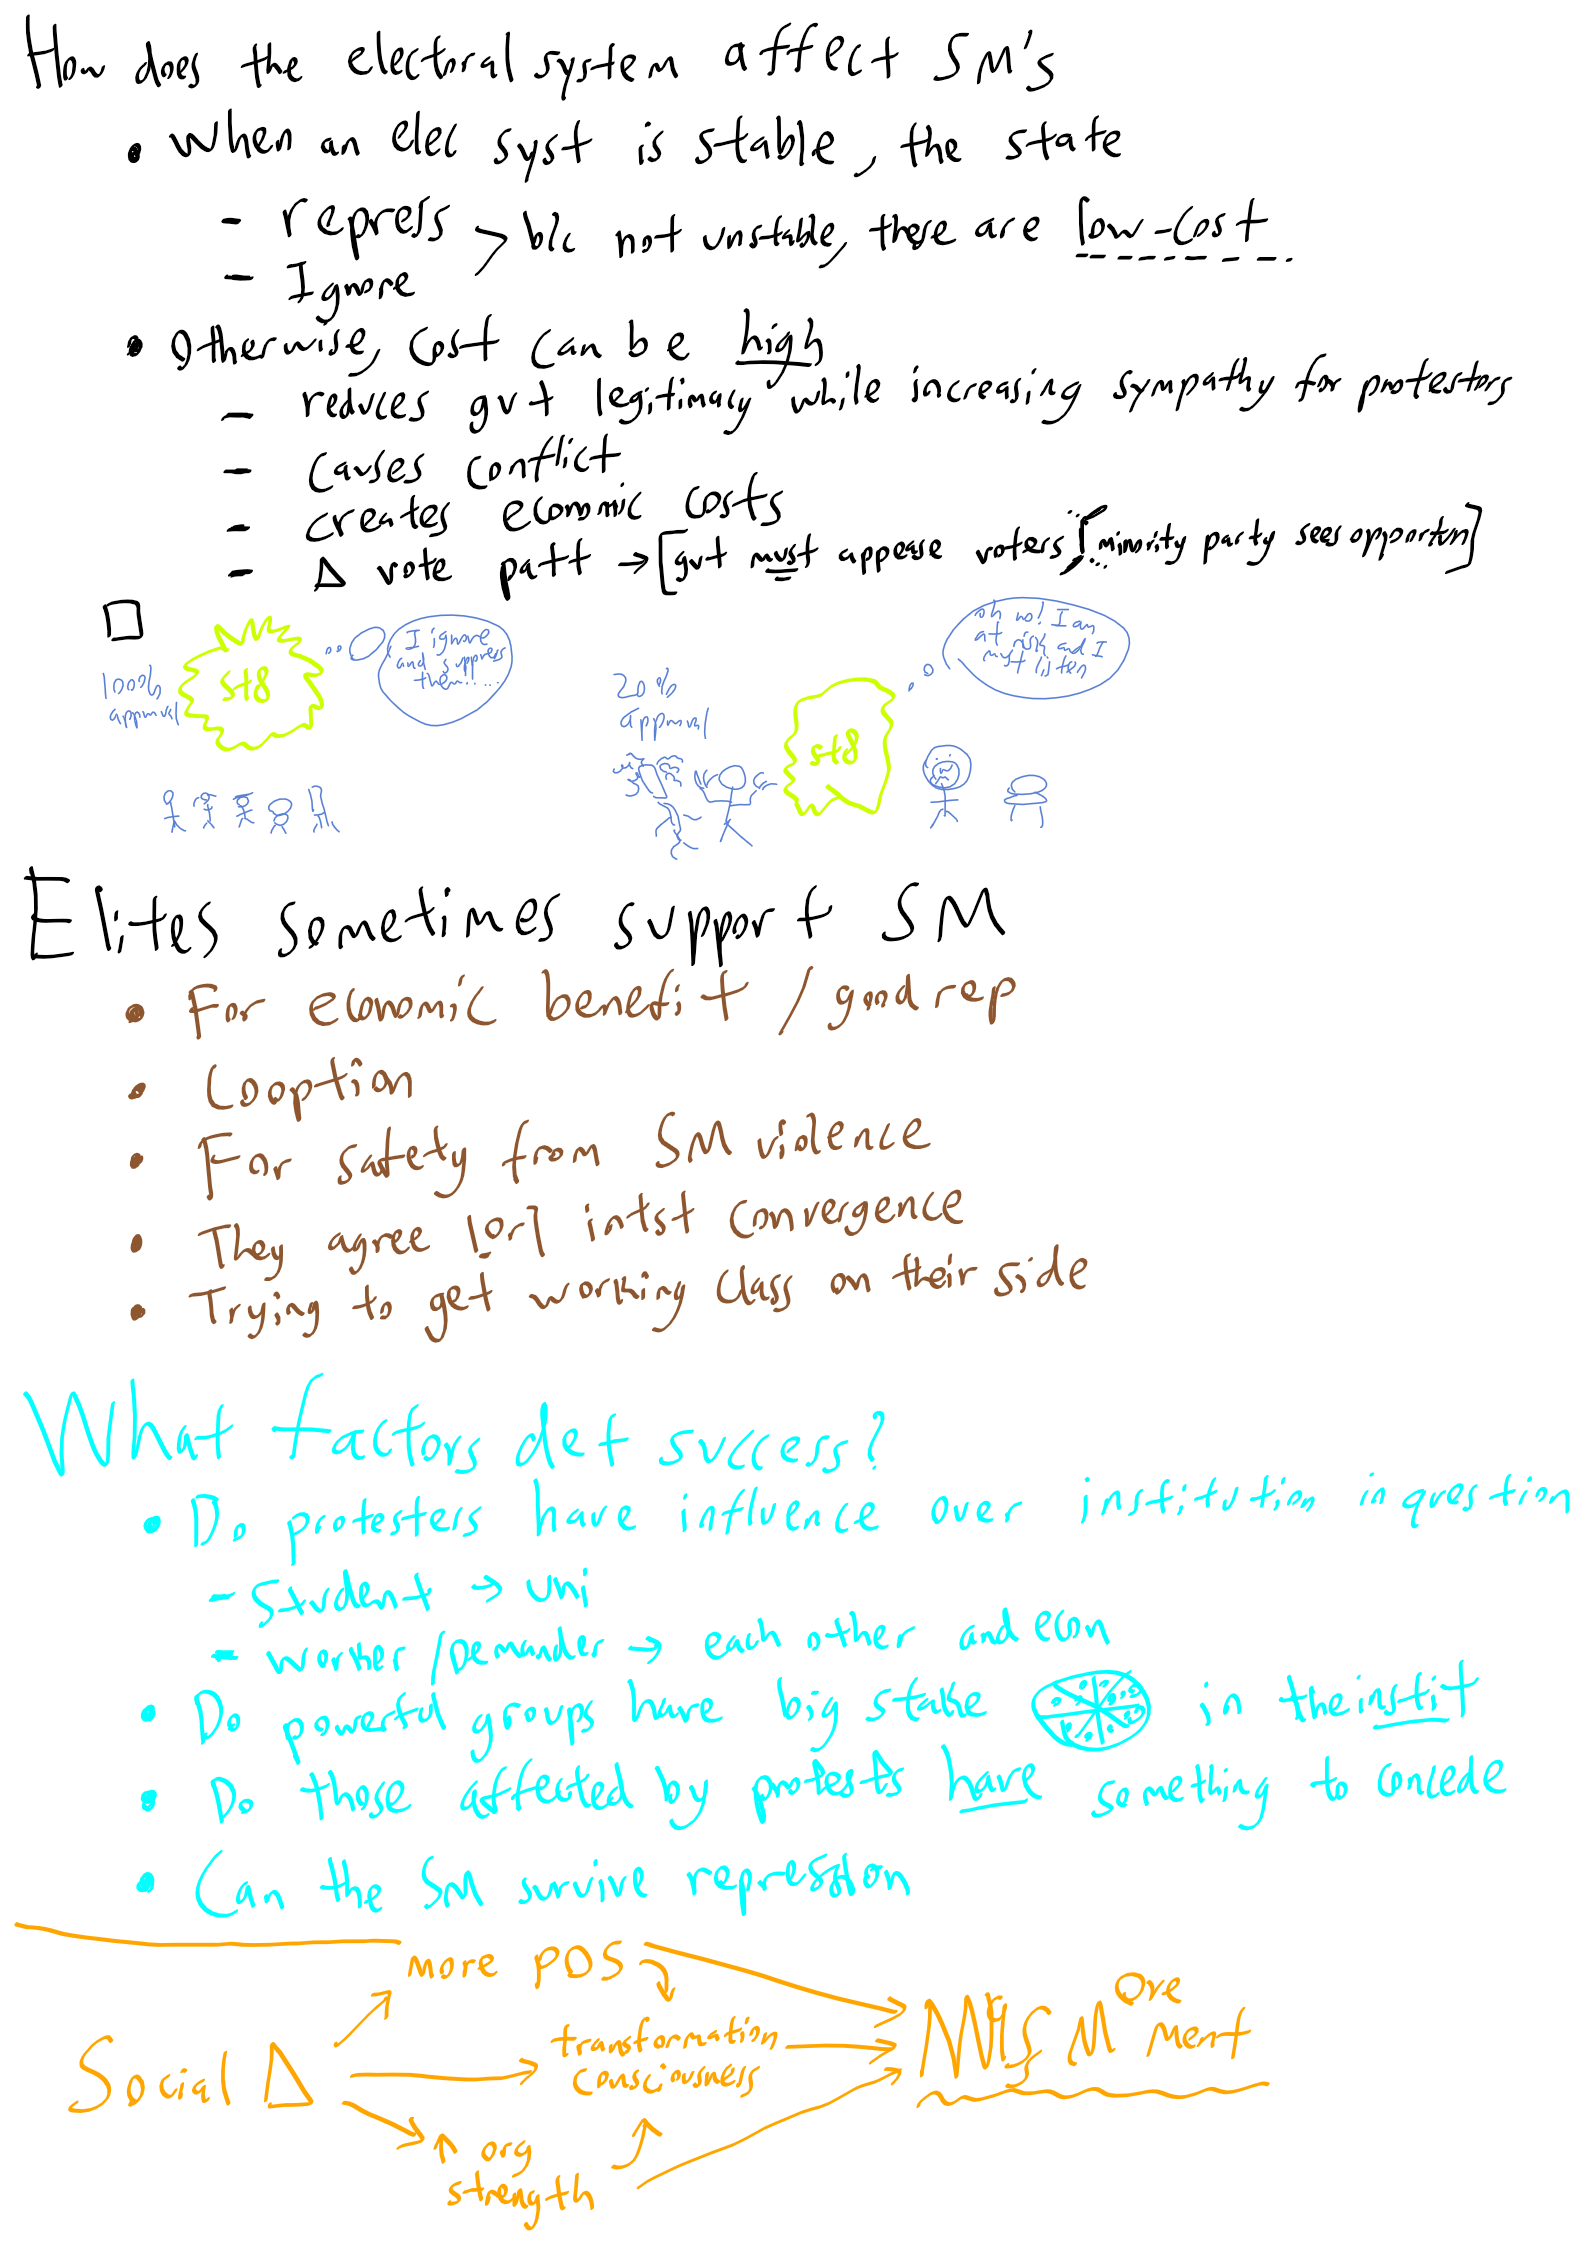 How does the electoral system affect SM's
• When an elec syst is stable, the state
- repress > b/c not unstable, these are low-cost
- Ignore
• Otherwise, cost can be high
- reduces gvt legitimacy while increasing sympathy for protestors
- causes conflict
- creates economic costs
- Δ vote patt → [gvt must appease voters / minority party sees opportun]
100% approval
st8
I ignore
and suppress
them!!...
20%
approval
st8
oh no! I am
at risk and I
must listen
Elites sometimes support SM
• For economic benefit / good rep
• Cooption
• For safety from SM violence
• They agree [or] intst convergence
• Trying to get working class on their side
What factors det success?
• Do protesters have influence over institution in question
- Student → uni
- worker / Demander → each other and econ
• Do powerful groups have big stake in the instit
• Do those affected by protests have something to concede
• Can the SM survive repression
more POS
Social Δ
transformation
consciousness
↑ org
strength
M ore
ment